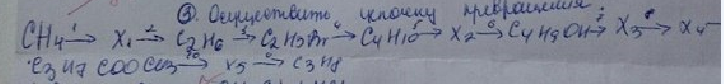 ③. Осуществить цепочку превращений:
CH4 →¹ X1 →² C2H6 →³ C2H5Br →⁴ C4H10 →⁵ X2 →⁶ C4H9OH →⁷ X3 →⁸ X4 →
C3H7 COO CH3 → X5 → C3H8